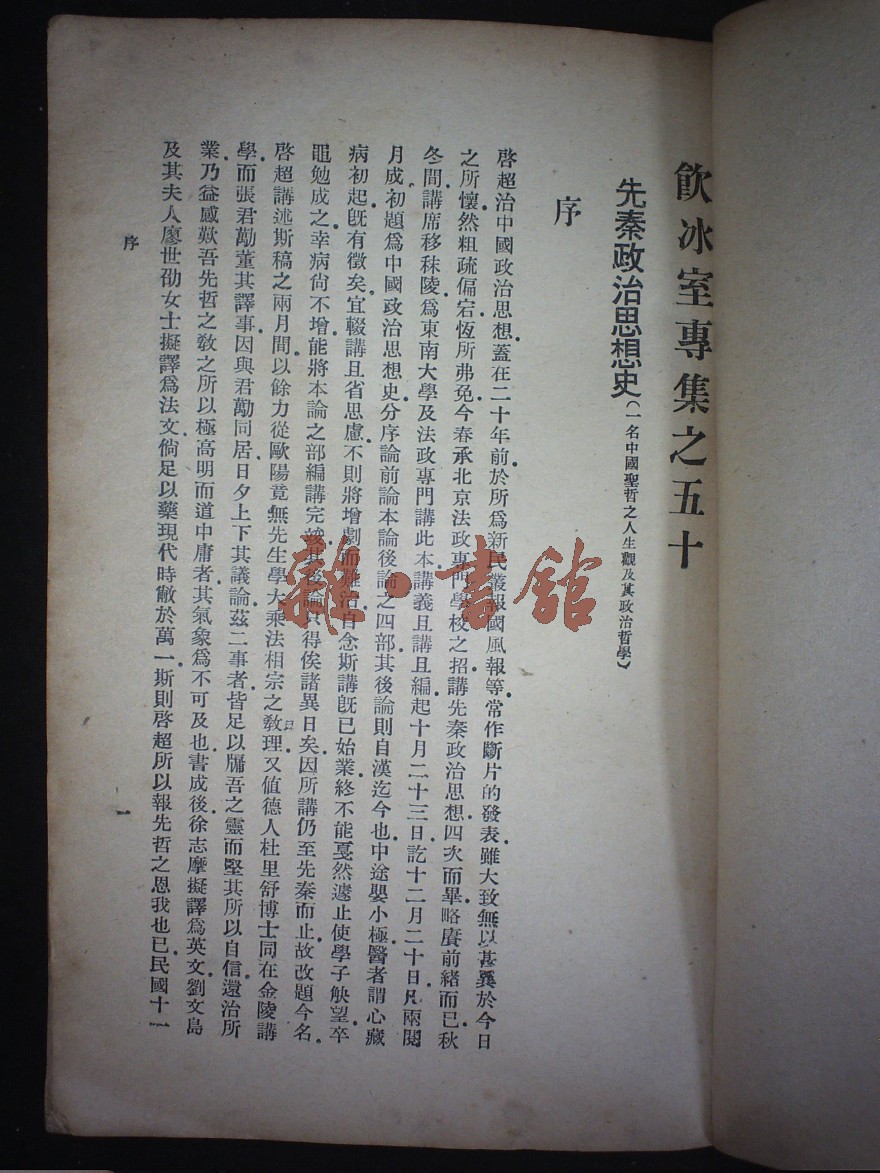 飲冰室專集之五十
先秦政治思想史(一名中國聖哲之人生觀及其政治哲學)
序
啓超治中國政治思想蓋在二十年前於所爲新民叢報國風報等常作斷片的發表雖大致無以甚異於今日
之所懷然粗疏偏宕恆所弗免今春承北京法政專門學校之招講先秦政治思想四次而畢略賡前緒而已秋
冬間講席移秣陵爲東南大學及法政專門講此本講義且講且編起十月二十三日訖十二月二十日凡兩閱
月成初題爲中國政治思想史分序論前論本論後論之四部其後論則自漢迄今也中途嬰小極醫者謂心藏
病初起旣有徵矣宜輟講且省思慮不則將增劇而難治自念斯講旣已始業終不能戛然遽止使學子觖望卒
黽勉成之幸病尙不增能將本論之部編講完竣其後論只得俟諸異日矣因所講仍至先秦而止故改題今名
啓超講述斯稿之兩月間以餘力從歐陽竟無先生學大乘法相宗之敎理又値德人杜里舒博士同在金陵講
學而張君勱董其譯事因與君勱同居日夕上下其議論茲二事者皆足以牖吾之靈而堅其所以自信還治所
業乃益感歎吾先哲之敎之所以極高明而道中庸者其氣象爲不可及也書成後徐志摩擬譯爲英文劉文島
及其夫人廖世劭女士擬譯爲法文倘足以藥現代時敝於萬一斯則啓超所以報先哲之恩我也已民國十一
序
一
雜·書館